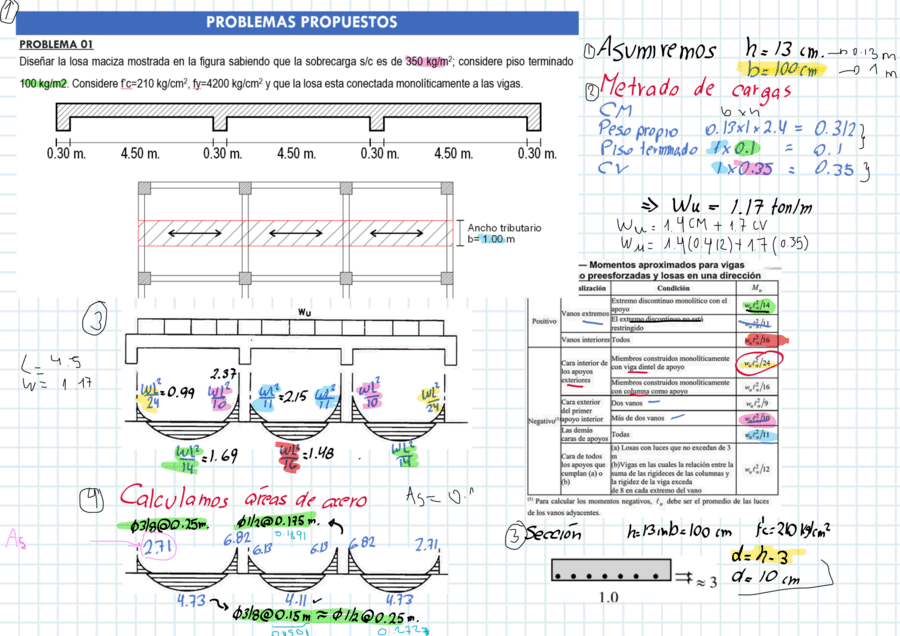 1
PROBLEMAS PROPUESTOS
PROBLEMA 01
Diseñar la losa maciza mostrada en la figura sabiendo que la sobrecarga s/c es de 350 kg/m²; considere piso terminado
100 kg/m2. Considere f'c=210 kg/cm², fy=4200 kg/cm² y que la losa esta conectada monolíticamente a las vigas.
0.30 m. 4.50 m. 0.30 m. 4.50 m. 0.30 m. 4.50 m. 0.30 m.
Ancho tributario
b= 1.00 m
① Asumiremos h = 13 cm. → 0.13 m
b = 100 cm → 1 m
② Metrado de cargas
CM b x h
Peso propio 0.13x1x2.4 = 0.312 }
Piso terminado 1x0.1 = 0.1
CV 1x0.35 = 0.35 }
⇒ Wu = 1.17 ton/m
Wu = 1.4CM + 1.7CV
Wu = 1.4(0.412)+1.7(0.35)
— Momentos aproximados para vigas
o preesforzadas y losas en una dirección
alización Condición Mu
Positivo
Vanos extremos
Extremo discontinuo monolítico con el
apoyo
wuℓn²/14
El extremo discontinuo no está
restringido
wuℓn²/11
Vanos interiores Todos wuℓn²/16
Negativo(1)
Cara interior de
los apoyos
exteriores
Miembros construidos monolíticamente
con viga dintel de apoyo
wuℓn²/24
Miembros construidos monolíticamente
con columna como apoyo
wuℓn²/16
Cara exterior
del primer
apoyo interior
Dos vanos wuℓn²/9
Más de dos vanos wuℓn²/10
Las demás
caras de apoyos
Todas wuℓn²/11
Cara de todos
los apoyos que
cumplan (a) o
(b)
(a) Losas con luces que no excedan de 3
m
(b)Vigas en las cuales la relación entre la
suma de las rigideces de las columnas y
la rigidez de la viga exceda
de 8 en cada extremo del vano
wuℓn²/12
(1) Para calcular los momentos negativos, ℓn debe ser el promedio de las luces
de los vanos adyacentes.
3
wu
L = 4.5
W = 1.17
2.37
WL²/24 = 0.99 WL²/10 WL²/11 = 2.15 WL²/11 WL²/10 WL²/24
WL²/14 = 1.69 WL²/16 = 1.48 WL²/14
④ Calculamos áreas de acero As = 0.
ϕ3/8@0.25m. ϕ1/2@0.175m.
As 2.71 6.82 6.13 6.13 6.82 2.71
4.73 4.11 4.73
ϕ3/8@0.15m ≈ ϕ1/2@0.25m.
③ Sección h=13cm b=100 cm f'c=210 kg/cm²
d = h-3
d = 10 cm
≈ 3
1.0